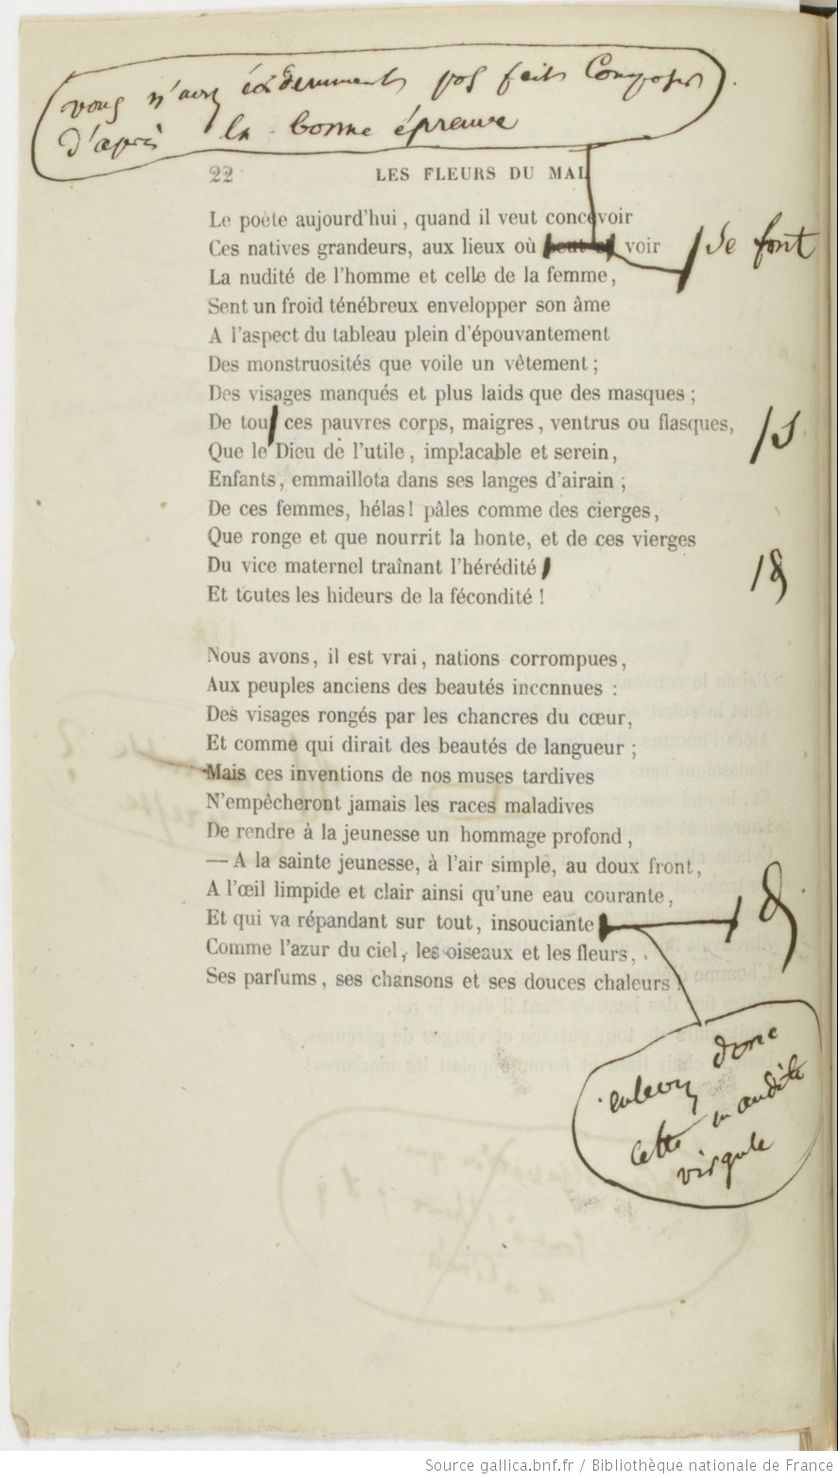 vous n'avez évidemment pas fait composer
d'après la bonne épreuve
22 LES FLEURS DU MAL
Le poète aujourd'hui, quand il veut concevoir
Ces natives grandeurs, aux lieux où peut voir
se font
La nudité de l'homme et celle de la femme,
Sent un froid ténébreux envelopper son âme
A l'aspect du tableau plein d'épouvantement
Des monstruosités que voile un vêtement ;
Des visages manqués et plus laids que des masques ;
De tou ces pauvres corps, maigres, ventrus ou flasques,
/s
Que le Dieu de l'utile, implacable et serein,
Enfants, emmaillota dans ses langes d'airain ;
De ces femmes, hélas! pâles comme des cierges,
Que ronge et que nourrit la honte, et de ces vierges
Du vice maternel traînant l'hérédité
Et toutes les hideurs de la fécondité !
Nous avons, il est vrai, nations corrompues,
Aux peuples anciens des beautés inconnues :
Des visages rongés par les chancres du cœur,
Et comme qui dirait des beautés de langueur ;
Mais ces inventions de nos muses tardives
N'empêcheront jamais les races maladives
De rendre à la jeunesse un hommage profond,
— A la sainte jeunesse, à l'air simple, au doux front,
A l'œil limpide et clair ainsi qu'une eau courante,
Et qui va répandant sur tout, insouciante
Comme l'azur du ciel, les oiseaux et les fleurs,
Ses parfums, ses chansons et ses douces chaleurs !
enlevez donc
cette maudite
virgule
Source gallica.bnf.fr / Bibliothèque nationale de France